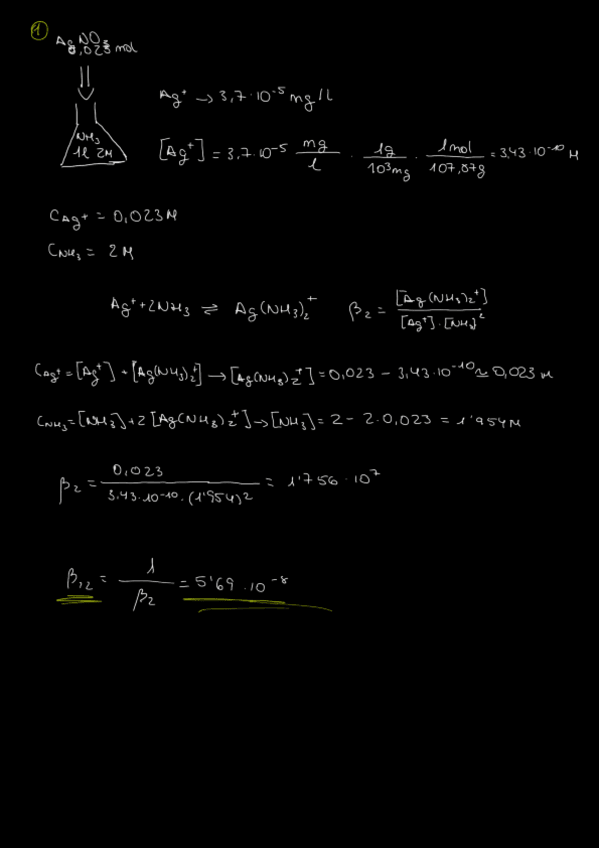 1
AgNO3
0,023 mol
Ag+ → 3,7·10^-5 mg/l
NH3
1l 2M
[Ag+] = 3,7·10^-5 mg/l · 1g/10^3mg · 1mol/107,87g = 3,43·10^-10 M
CAg+ = 0,023M
CNH3 = 2M
Ag+ + 2NH3 ⇌ Ag(NH3)2+ β2 = [Ag(NH3)2+]/[Ag+]·[NH3]^2
CAg+ = [Ag+] + [Ag(NH3)2+] → [Ag(NH3)2+] = 0,023 − 3,43·10^-10 ≃ 0,023 M
CNH3 = [NH3] + 2[Ag(NH3)2+] → [NH3] = 2 − 2·0,023 = 1'954M
β2 = 0,023/3,43·10^-10·(1'954)^2 = 1'756·10^7
β1,2 = 1/β2 = 5'69·10^-8